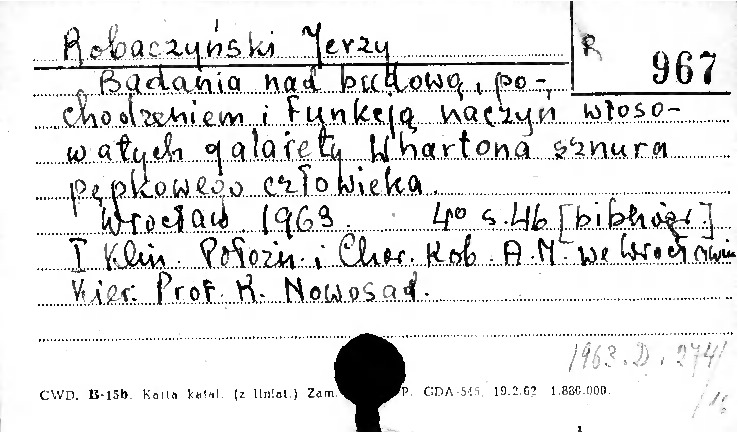 Robaczyński Jerzy
R 967
Badania nad budową, po-
chodzeniem i funkcją naczyń włoso-
watych galarety Whartona sznura
pępkowego człowieka.
Wrocław 1963. 4° s. 46 [bibliogr]
I Klin. Położn. i Chor. Kob. A.M. we Wrocławiu
Kier. Prof. K. Nowosad.
1963.D.274/
/16
CWD. B-15b. Karta katal. (z liniat.) Zam. P. GDA-545. 19.2.62 1.880.000.